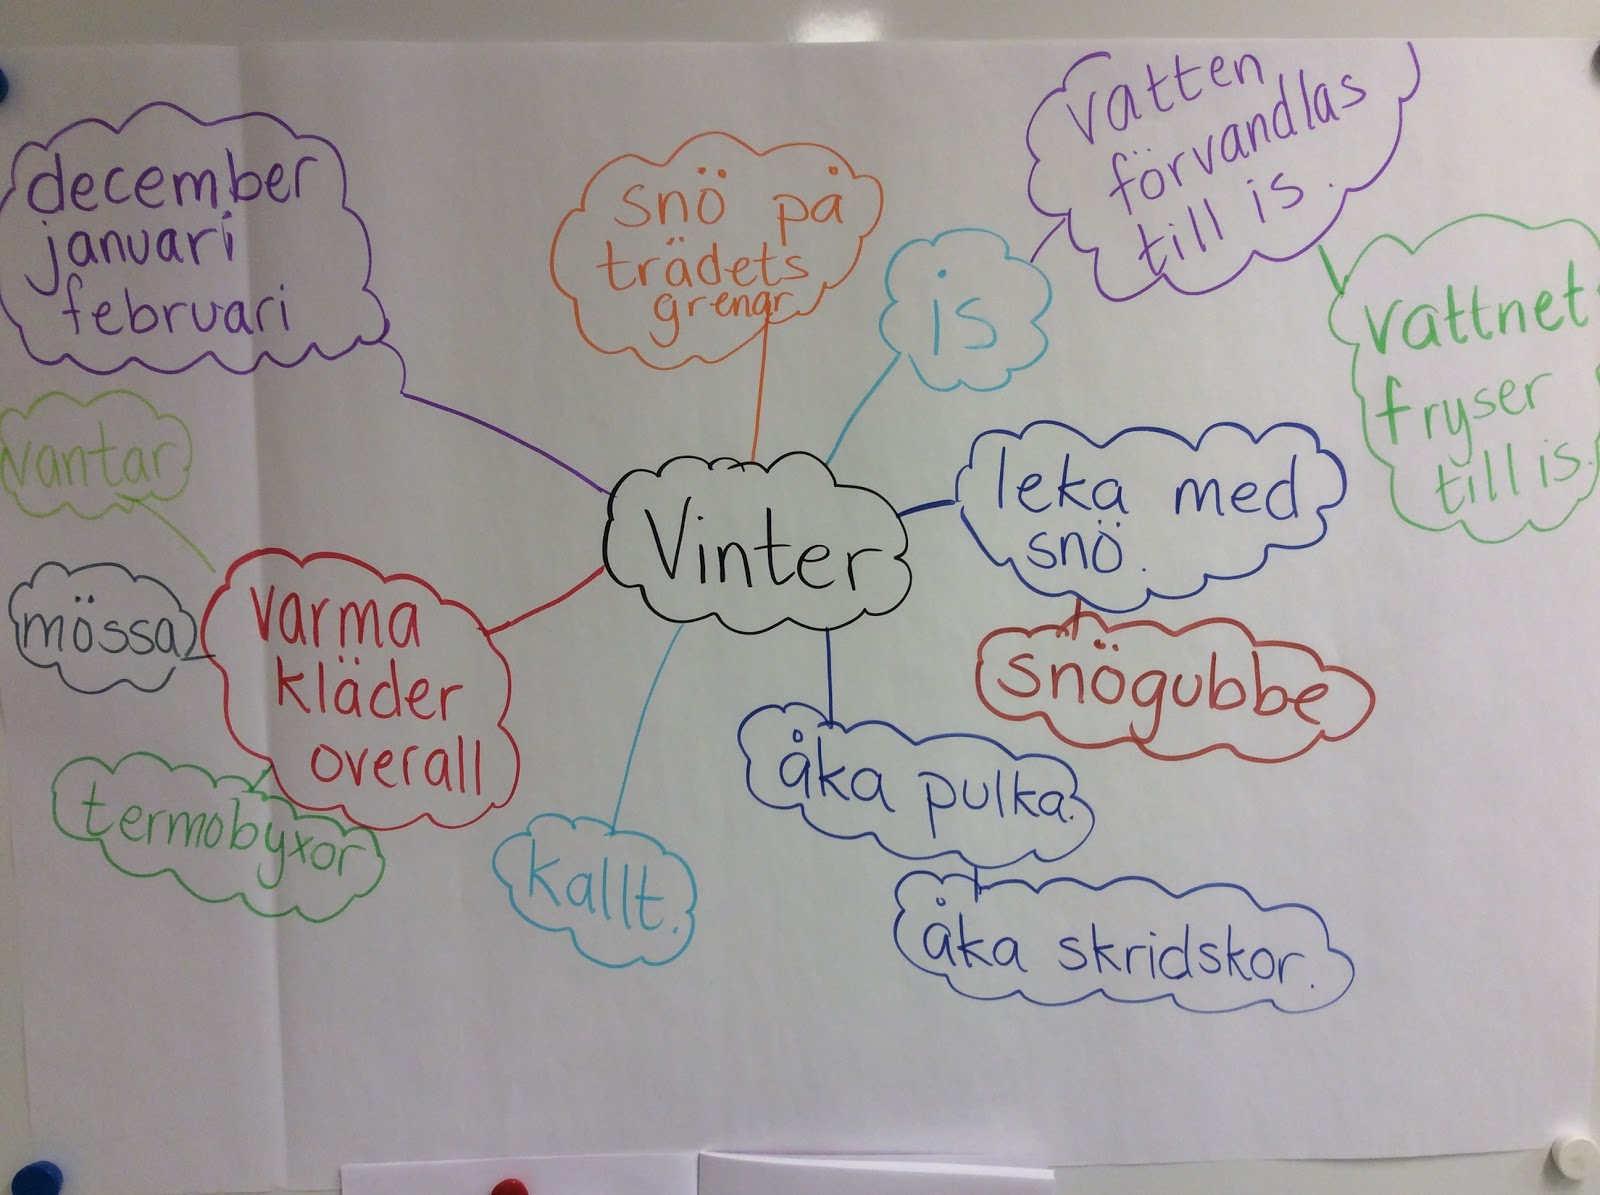 december
januari
februari
snö på
trädets
grenar
is
vatten
förvandlas
till is.
vattnet
fryser
till is.
vantar
mössa
varma
kläder
overall
termobyxor
Vinter
leka med
snö.
snögubbe
kallt.
åka pulka.
åka skridskor.